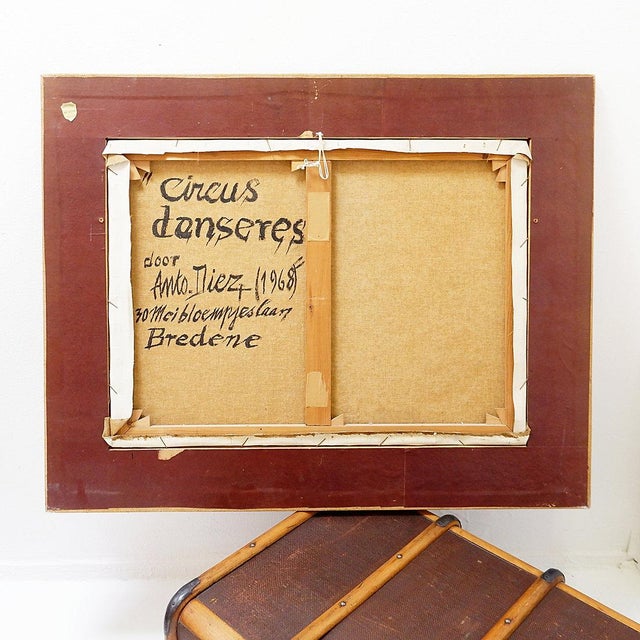 "Circus
danseres
door
Anto. Diez (1968)
30 Meibloempjeslaan
Bredene